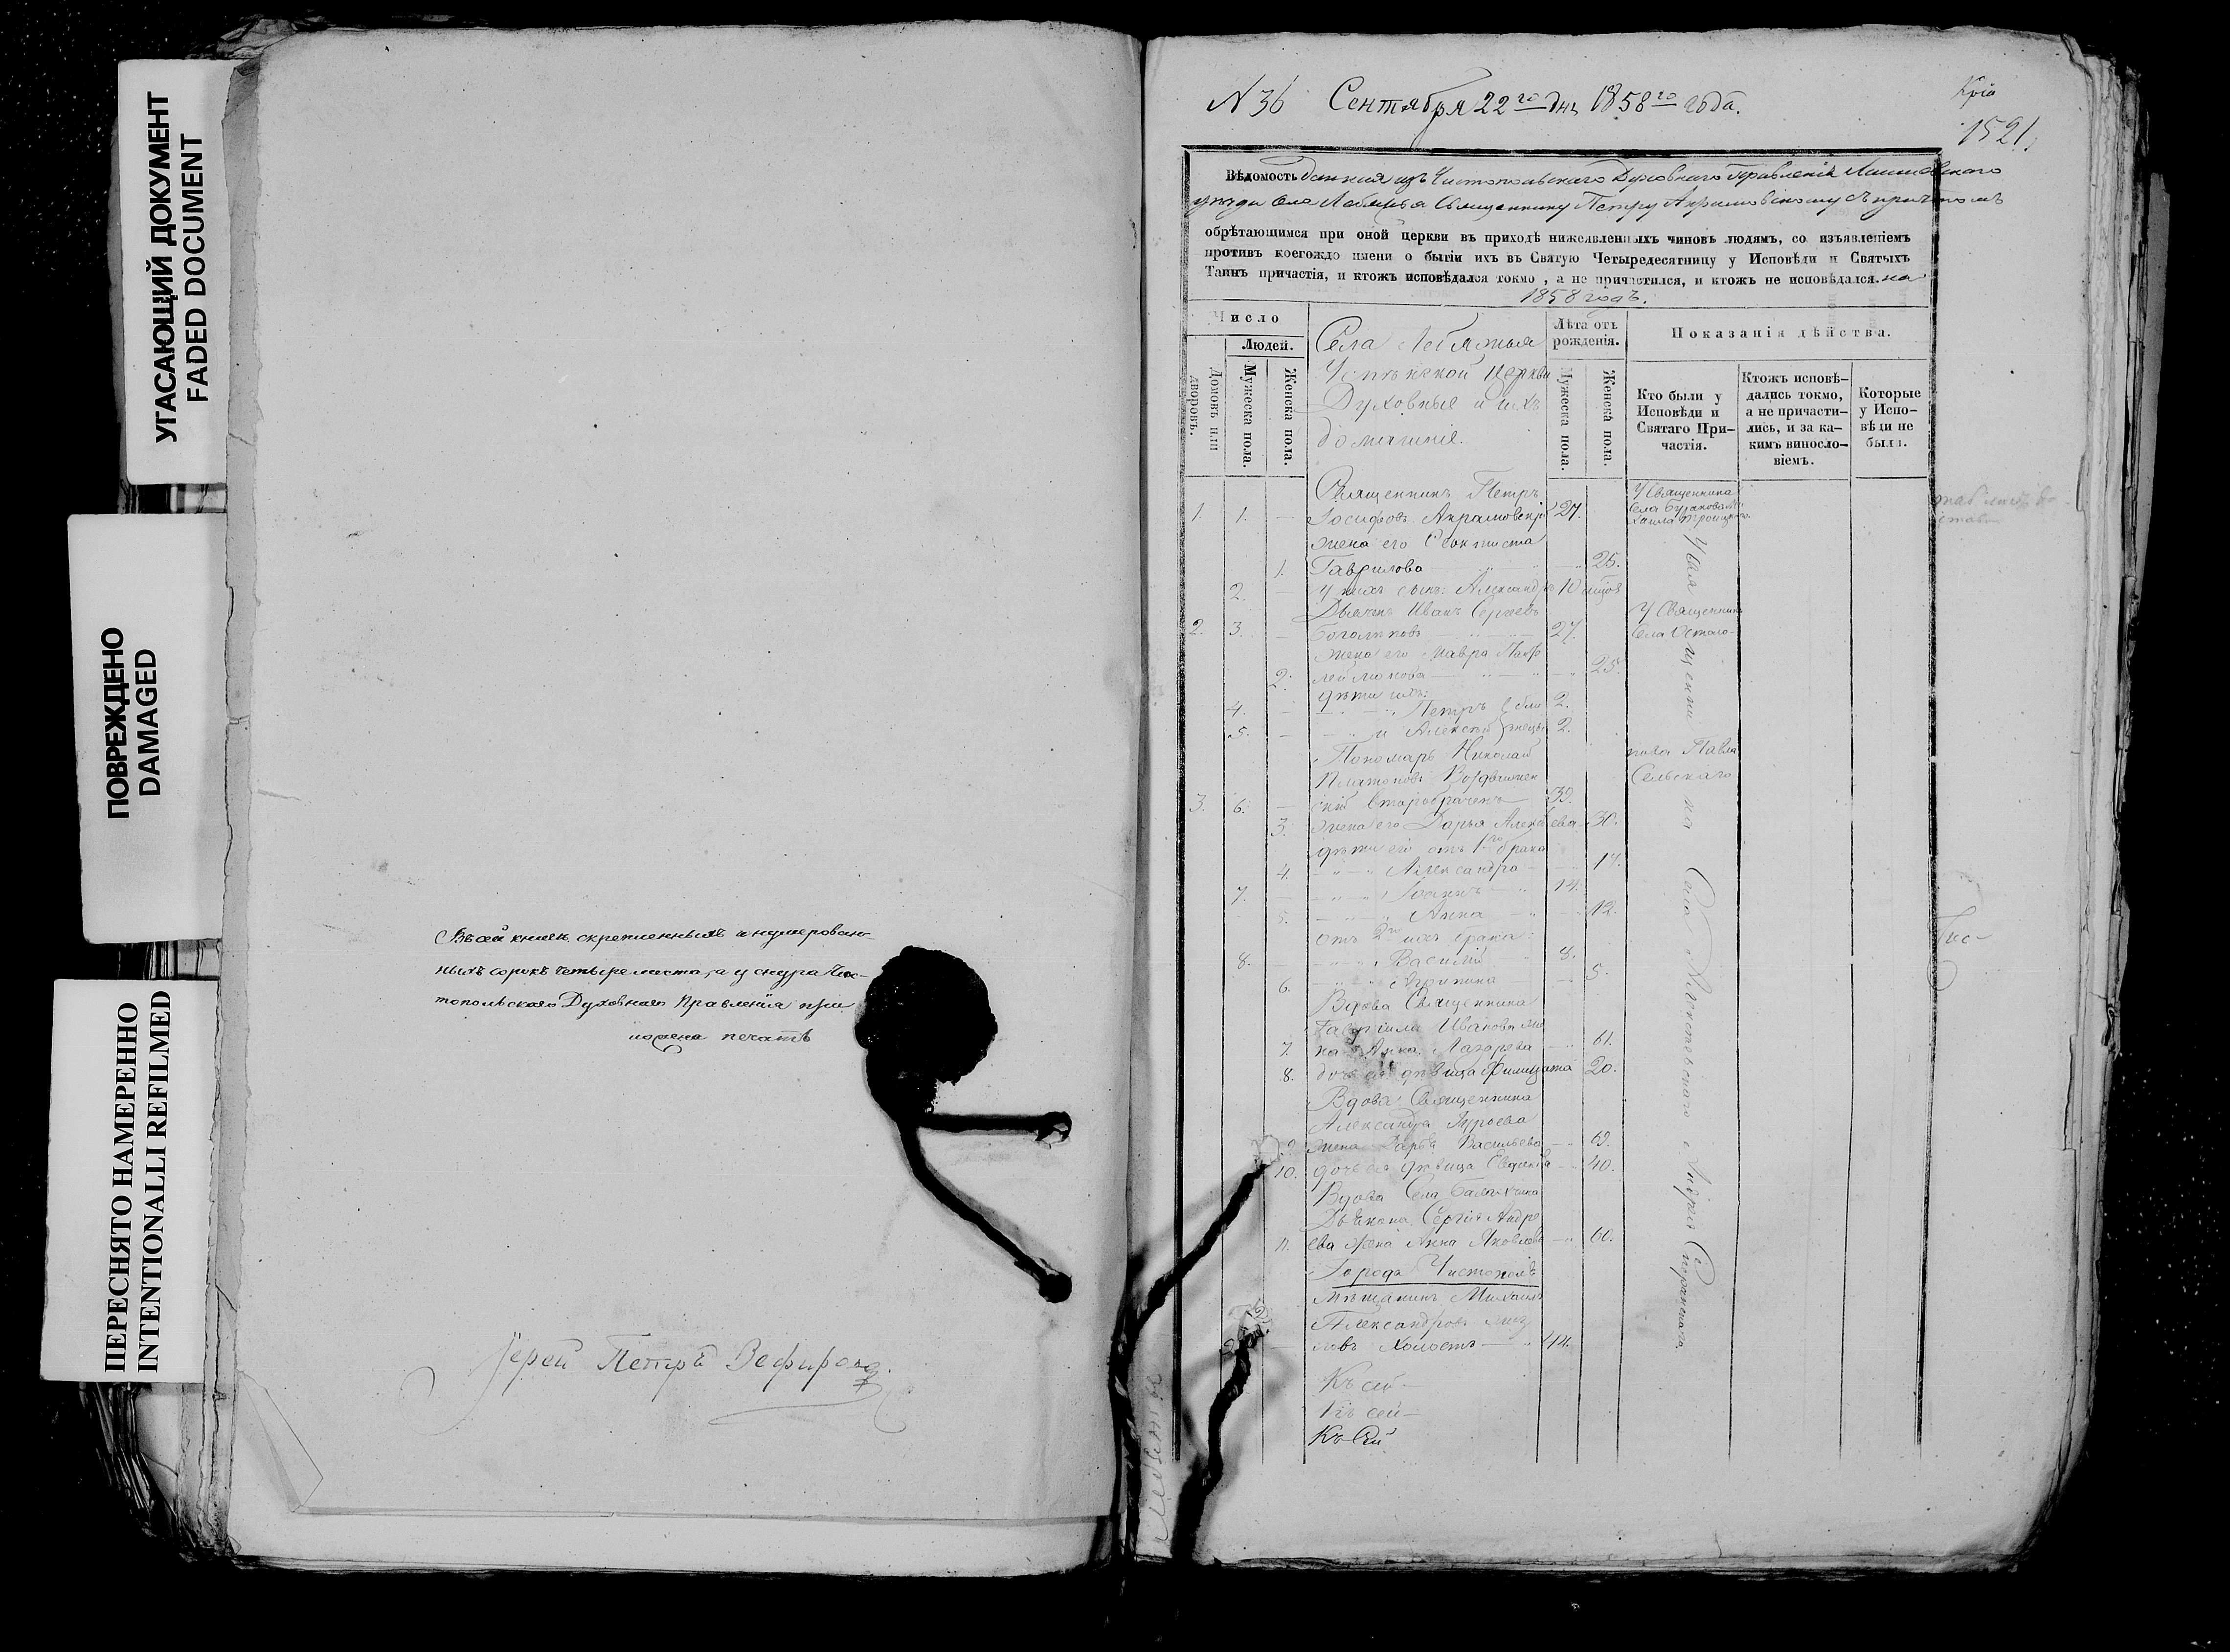 УГАСАЮЩИЙ ДОКУМЕНТ
FADED DOCUMENT
ПОВРЕЖДЕНО
DAMAGED
ПЕРЕСНЯТО НАМЕРЕННО
INTENTIONALLI REFILMED
Въ сей книгѣ скрепленныхъ и нумерован-
ныхъ сорокъ четыре листа, а у снура Чис-
топольского Духовнаго Правленія при
ложена печать
Іерей Петръ
N 36 Сентября 22го дня 1858го года.
1521.
Вѣдомость данная изъ Чистопольскаго Духовнаго Правленія Лаишевского
уезда села Лебяжья Священнику Петру Акрамовскому съ причтомъ
обрѣтающимся при оной церкви въ приходѣ нижеявленныхъ чиновъ людямъ, со изъявленіемъ
противъ коегождо имени о бытіи ихъ въ Святую Четыредесятницу у Исповѣди и Святыхъ
Таинъ причастія, и ктожъ исповѣдался токмо, а не причастился, и ктожъ не исповѣдался. на
1858 годъ.
Число
Домовъ или дворовъ.
Людей.
Мужеска пола.
Женска пола.
Села Лебяжья
Успѣнской церкви
Духовные и ихъ
домашніе.
Лѣта отъ рожденія.
Мужеска пола.
Женска пола.
Показанія дѣйства.
Кто были у
Исповѣди и
Святаго При-
частія.
Ктожъ исповѣ-
дались токмо,
а не причасти-
лись, и за ка-
кимъ винословіемъ.
Которые
у Испо-
вѣди не
были.
Священникъ Петръ
1. 1. — Іосифовъ Акрамовскій 27.
У Священника
Села Буракова Ми-
хаила Троицкаго
жена его Феоктиста
1. Гаврилова 25.
2. — у нихъ сынъ Александръ 10 мцов
Дьяконъ Иванъ Сергеевъ
2. 3. — Боголюбовъ 27.
У Священника
Села Остало-
жена его Мавра
2. 25.
дѣти ихъ:
4. — Петръ близ 2.
5. — и Алексей нецы 2.
Пономарь Николай
Платоновъ Воздвижен
3. 6. — скій Второбрачень 39.
пова Павла
Сельскаго
3. жена его Дарья Алексѣева 30.
дѣти его отъ 1го брака
4. Александра 17.
7. — Іоаннъ 14.
5. Анна 12.
отъ 2го ихъ брака:
8. — Василій 8.
6. Агрипина 5.
Вдова Священника
Гавріила Иванова же
7. на Анна Лазорева 61.
8. дочь ея дѣвица Филицата 20.
Вдова Священника
Александра Гурьева
9. жена Дарья Васильева 69.
10. дочь ея дѣвица 40.
Вдова Села
Дьякона Сергія Андре
11. ева жена Анна Яковлева 60.
Города Чистополя
Мѣщанинъ Михаилъ
Александровъ
новъ Холостъ 44.
Къ сей
Къ сей
Къ сей
У Священника Села Андрея